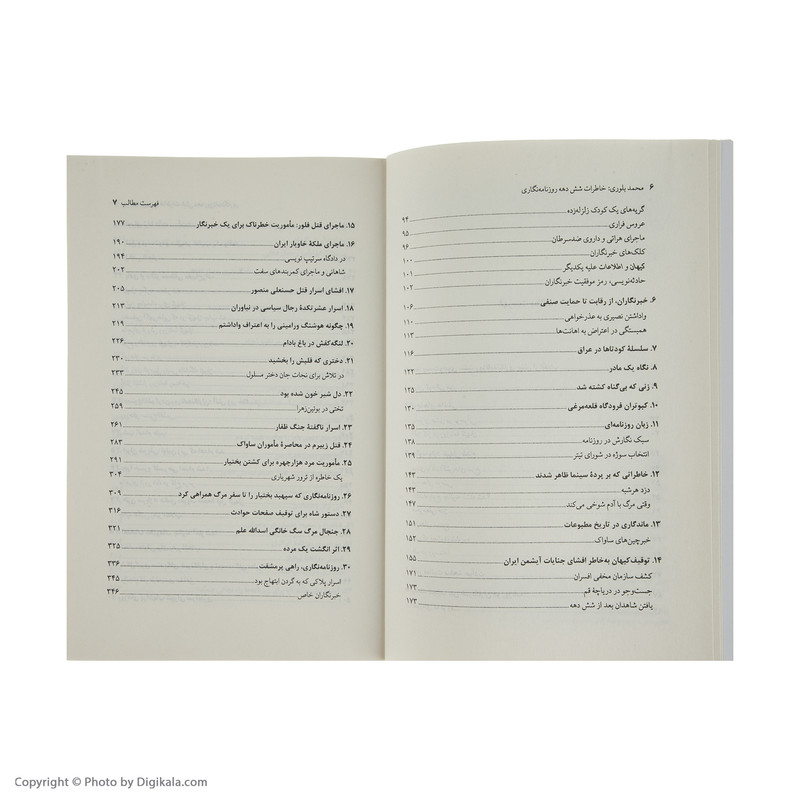 ۶ محمد بلوری: خاطرات شش دهه روزنامه‌نگاری
گریه‌های یک کودک زلزله‌زده ۹۴
عروس فراری ۹۵
ماجرای هراتی و داروی ضدسرطان ۹۶
کلک‌های خبرنگاران ۱۰۰
کیهان و اطلاعات علیه یکدیگر ۱۰۱
حادثه‌نویسی، رمز موفقیت خبرنگاران ۱۰۲
۶. خبرنگاران، از رقابت تا حمایت صنفی ۱۰۶
واداشتن نصیری به عذرخواهی ۱۱۰
همبستگی در اعتراض به اهانت‌ها ۱۱۳
۷. سلسلهٔ کودتاها در عراق ۱۱۶
۸. نگاه یک مادر ۱۲۲
۹. زنی که بی‌گناه کشته شد ۱۲۵
۱۰. کبوتران فرودگاه قلعه‌مرغی ۱۳۰
۱۱. زبان روزنامه‌ای ۱۳۵
سبک نگارش در روزنامه ۱۳۸
انتخاب سوژه در شورای تیتر ۱۳۹
۱۲. خاطراتی که بر پردهٔ سینما ظاهر شدند ۱۴۳
دزد هرشبه ۱۴۳
وقتی مرگ با آدم شوخی می‌کند ۱۴۷
۱۳. ماندگاری در تاریخ مطبوعات ۱۵۱
خبرچین‌های ساواک ۱۵۲
۱۴. توقیف کیهان به‌خاطر افشای جنایات آیشمن ایران ۱۵۵
کشف سازمان مخفی افسران ۱۷۱
جست‌وجو در دریاچهٔ قم ۱۷۳
یافتن شاهدان بعد از شش دهه ۱۷۳
فهرست مطالب ۷
۱۵. ماجرای قتل فلور: مأموریت خطرناک برای یک خبرنگار ۱۷۷
۱۶. ماجرای ملکهٔ خاویار ایران ۱۹۰
در دادگاه سرتیپ نویسی ۱۹۴
شاهانی و ماجرای کمربندهای سفت ۲۰۲
۱۷. افشای اسرار قتل حسنعلی منصور ۲۰۵
۱۸. اسرار عشرتکدهٔ رجال سیاسی در نیاوران ۲۱۳
۱۹. چگونه هوشنگ ورامینی را به اعتراف واداشتم ۲۱۹
۲۰. لنگه‌کفش در باغ بادام ۲۲۶
۲۱. دختری که قلبش را بخشید ۲۳۰
در تلاش برای نجات جان دختر مسلول ۲۳۳
۲۲. دل شیر خون شده بود ۲۴۵
تختی در بوئین‌زهرا ۲۵۹
۲۳. اسرار ناگفتهٔ جنگ ظفار ۲۶۱
۲۴. قتل زیبرم در محاصرهٔ مأموران ساواک ۲۸۳
۲۵. مأموریت مرد هزارچهره برای کشتن بختیار ۲۹۱
یک خاطره از ترور شهریاری ۳۰۴
۲۶. روزنامه‌نگاری که سپهبد بختیار را تا سفر مرگ همراهی کرد ۳۰۹
۲۷. دستور شاه برای توقیف صفحات حوادث ۳۱۶
۲۸. جنجال مرگ سگ خانگی اسدالله علم ۳۲۱
۲۹. اثر انگشت یک مرده ۳۲۵
۳۰. روزنامه‌نگاری، راهی پرمشقت ۳۳۶
اسرار پلاکی که به گردن ابتهاج بود ۳۴۵
خبرنگاران خاص ۳۴۶
Copyright © Photo by Digikala.com